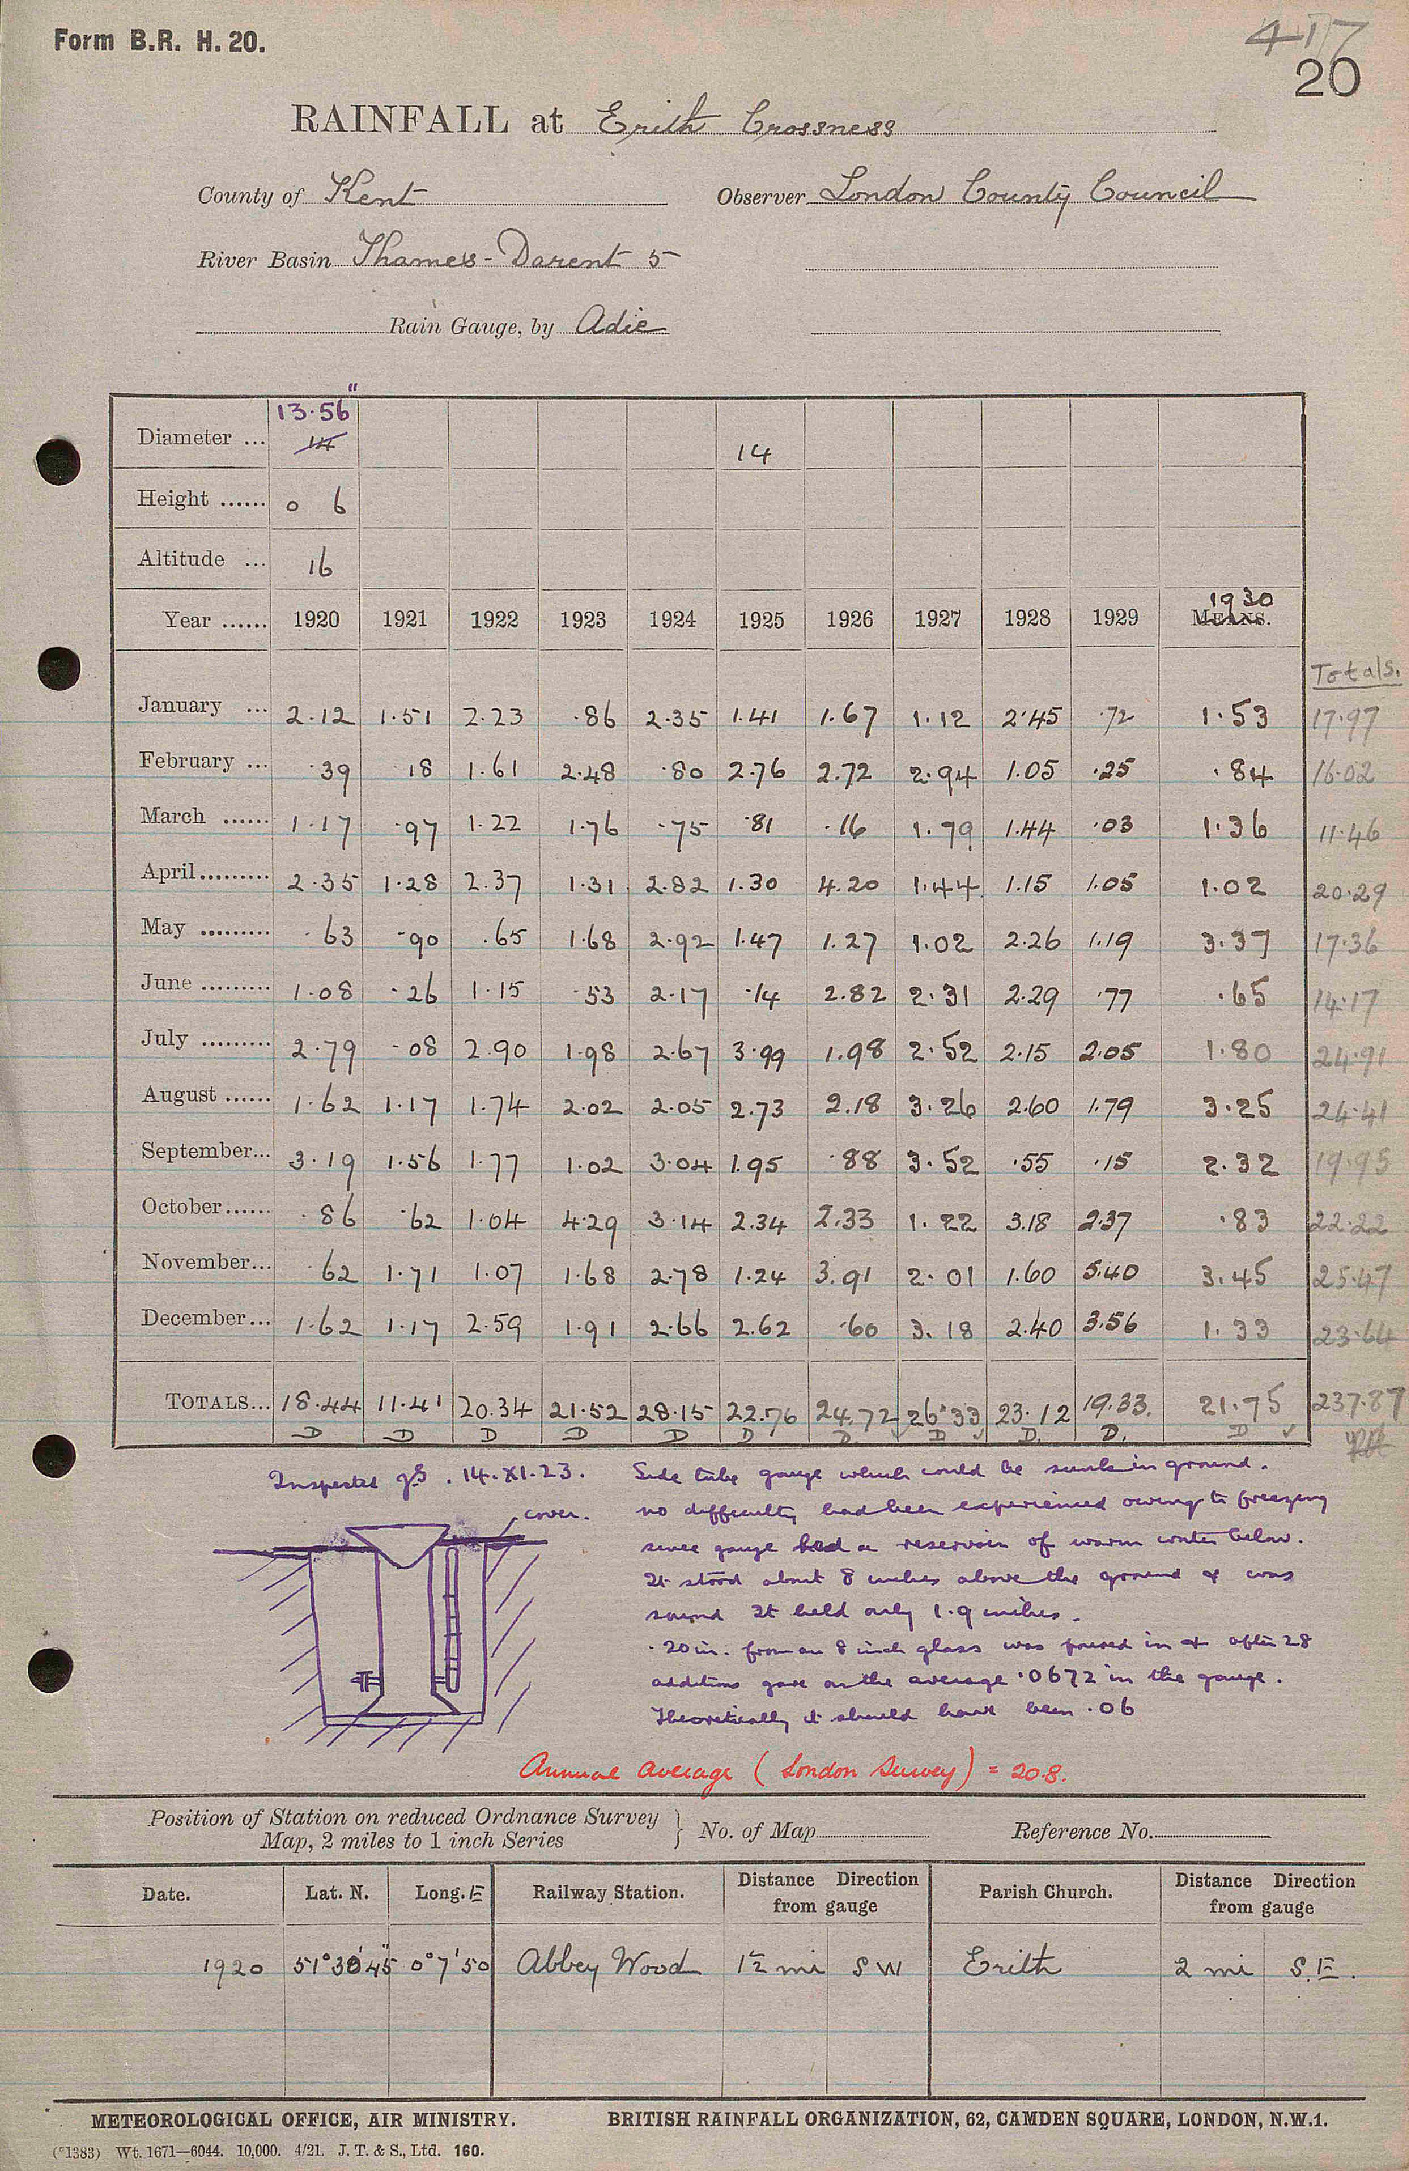 Form B.R. H. 20.
417
20
RAINFALL at Erith Crossness
County of Kent Observer London County Council
River Basin Thames - Darent 5
Rain Gauge, by Adie
Diameter ... 13.56" 14 14
Height ...... 0 6
Altitude ... 16
Year ...... 1920 1921 1922 1923 1924 1925 1926 1927 1928 1929 MEANS. 1930
Totals.
January ... 2.12 1.51 2.23 .86 2.35 1.41 1.67 1.12 2.45 .72 1.53 17.97
February ... .39 .18 1.61 2.48 .80 2.76 2.72 2.94 1.05 .25 .84 16.02
March ...... 1.17 .97 1.22 1.76 .75 .81 .16 1.79 1.44 .03 1.36 11.46
April......... 2.35 1.28 2.37 1.31 2.82 1.30 4.20 1.44 1.15 1.05 1.02 20.29
May ......... .63 .90 .65 1.68 2.92 1.47 1.27 1.02 2.26 1.19 3.37 17.36
June ......... 1.08 .26 1.15 .53 2.17 .14 2.82 2.31 2.29 .77 .65 14.17
July ......... 2.79 .08 2.90 1.98 2.67 3.99 1.98 2.52 2.15 2.05 1.80 24.91
August ...... 1.62 1.17 1.74 2.02 2.05 2.73 2.18 3.26 2.60 1.79 3.25 24.41
September... 3.19 1.56 1.77 1.02 3.04 1.95 .88 3.52 .55 .15 2.32 19.95
October...... .86 .62 1.04 4.29 3.14 2.34 2.33 1.22 3.18 2.37 .83 22.22
November... .62 1.71 1.07 1.68 2.78 1.24 3.91 2.01 1.60 5.40 3.45 25.47
December... 1.62 1.17 2.59 1.91 2.66 2.62 .60 3.18 2.40 3.56 1.33 23.64
TOTALS... 18.44 11.41 20.34 21.52 28.15 22.76 24.72 26.33 23.12 19.33 21.75 237.87
D D D D D D D D D. D. D
Inspected . 14.XI.23. Side tube gauge which could be sunk in ground.
cover. no difficulty had been experienced owing to freezing
since gauge had a reservoir of warm water below.
It stood about 8 inches above the ground & was
sound It held only 1.9 inches.
.20 in. from an 8 inch glass was poured in & after 28
additions gave on the average .0672 in the gauge.
Theoretically it should have been .06
Annual average (London Survey) = 20.8.
Position of Station on reduced Ordnance Survey
Map, 2 miles to 1 inch Series } No. of Map Reference No.
Date. Lat. N. Long. E Railway Station. Distance Direction from gauge Parish Church. Distance Direction from gauge
1920 51°30'45" 0°7'50 Abbey Wood 1½ mi SW Erith 2 mi S.E.
METEOROLOGICAL OFFICE, AIR MINISTRY. BRITISH RAINFALL ORGANIZATION, 62, CAMDEN SQUARE, LONDON, N.W.1.
(*1383) Wt. 1671—6044. 10,000. 4/21. J. T. & S., Ltd. 160.